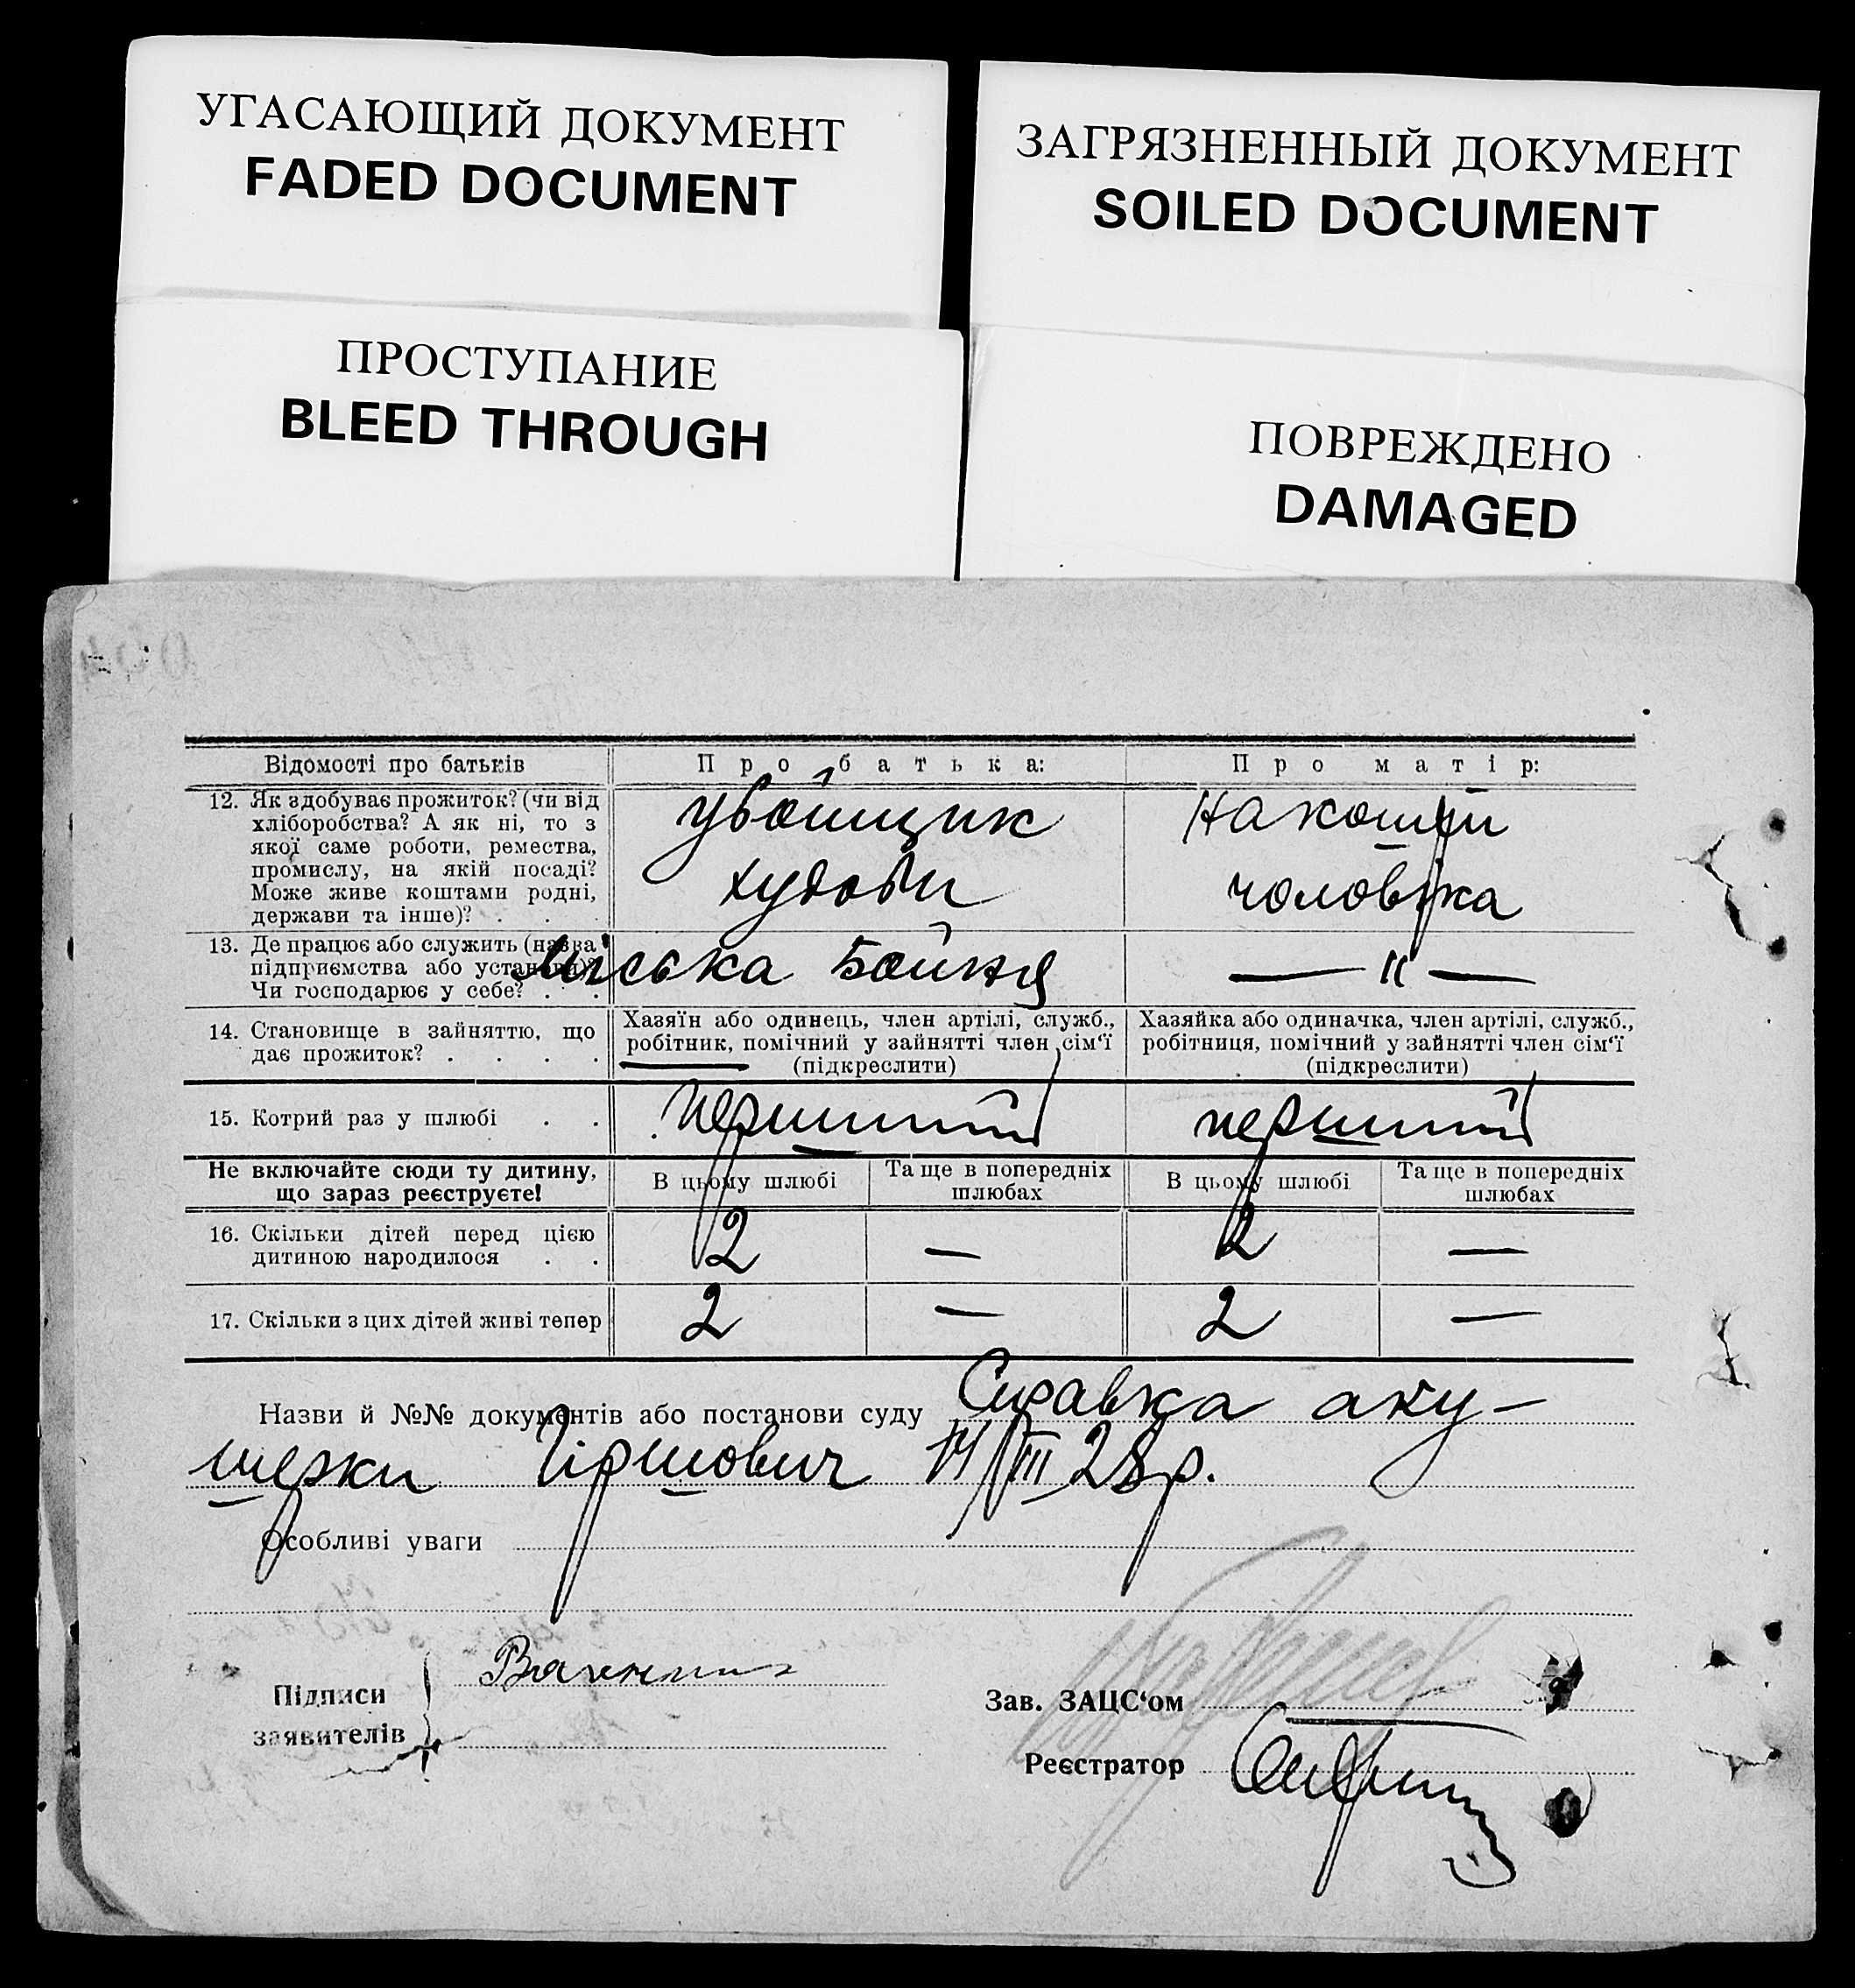 УГАСАЮЩИЙ ДОКУМЕНТ
FADED DOCUMENT
ЗАГРЯЗНЕННЫЙ ДОКУМЕНТ
SOILED DOCUMENT
ПРОСТУПАНИЕ
BLEED THROUGH
ПОВРЕЖДЕНО
DAMAGED
Відомості про батьків
Про батька:
Про матір:
12. Як здобуває прожиток? (чи від
хліборобства? А як ні, то з
якої саме роботи, ремества,
промислу, на якій посаді?
Може живе коштами родні,
держави та інше)? . . .
убойщик
худоби
На кошти
чоловіка
13. Де працює або служить (назва
підприємства або установи)?
Чи господарює у себе? . . .
Міська Бойня
— " —
14. Становище в зайняттю, що
дає прожиток? . . . .
Хазяїн або одинець, член артілі, служб.,
робітник, помічний у зайнятті член сім'ї
(підкреслити)
Хазяйка або одиначка, член артілі, служб.,
робітниця, помічний у зайнятті член сім'ї
(підкреслити)
15. Котрий раз у шлюбі . .
перший
перший
Не включайте сюди ту дитину,
що зараз реєструєте!
В цьому шлюбі
Та ще в попередніх
шлюбах
В цьому шлюбі
Та ще в попередніх
шлюбах
16. Скільки дітей перед цією
дитиною народилося . .
2
—
2
—
17. Скільки з цих дітей живі тепер
2
—
2
—
Назви й №№ документів або постанови суду Справка аку-
шерки Гіршович 14/VIII 28 р.
Особливі уваги
Підписи
заявителів
Зав. ЗАЦС'ом
Реєстратор